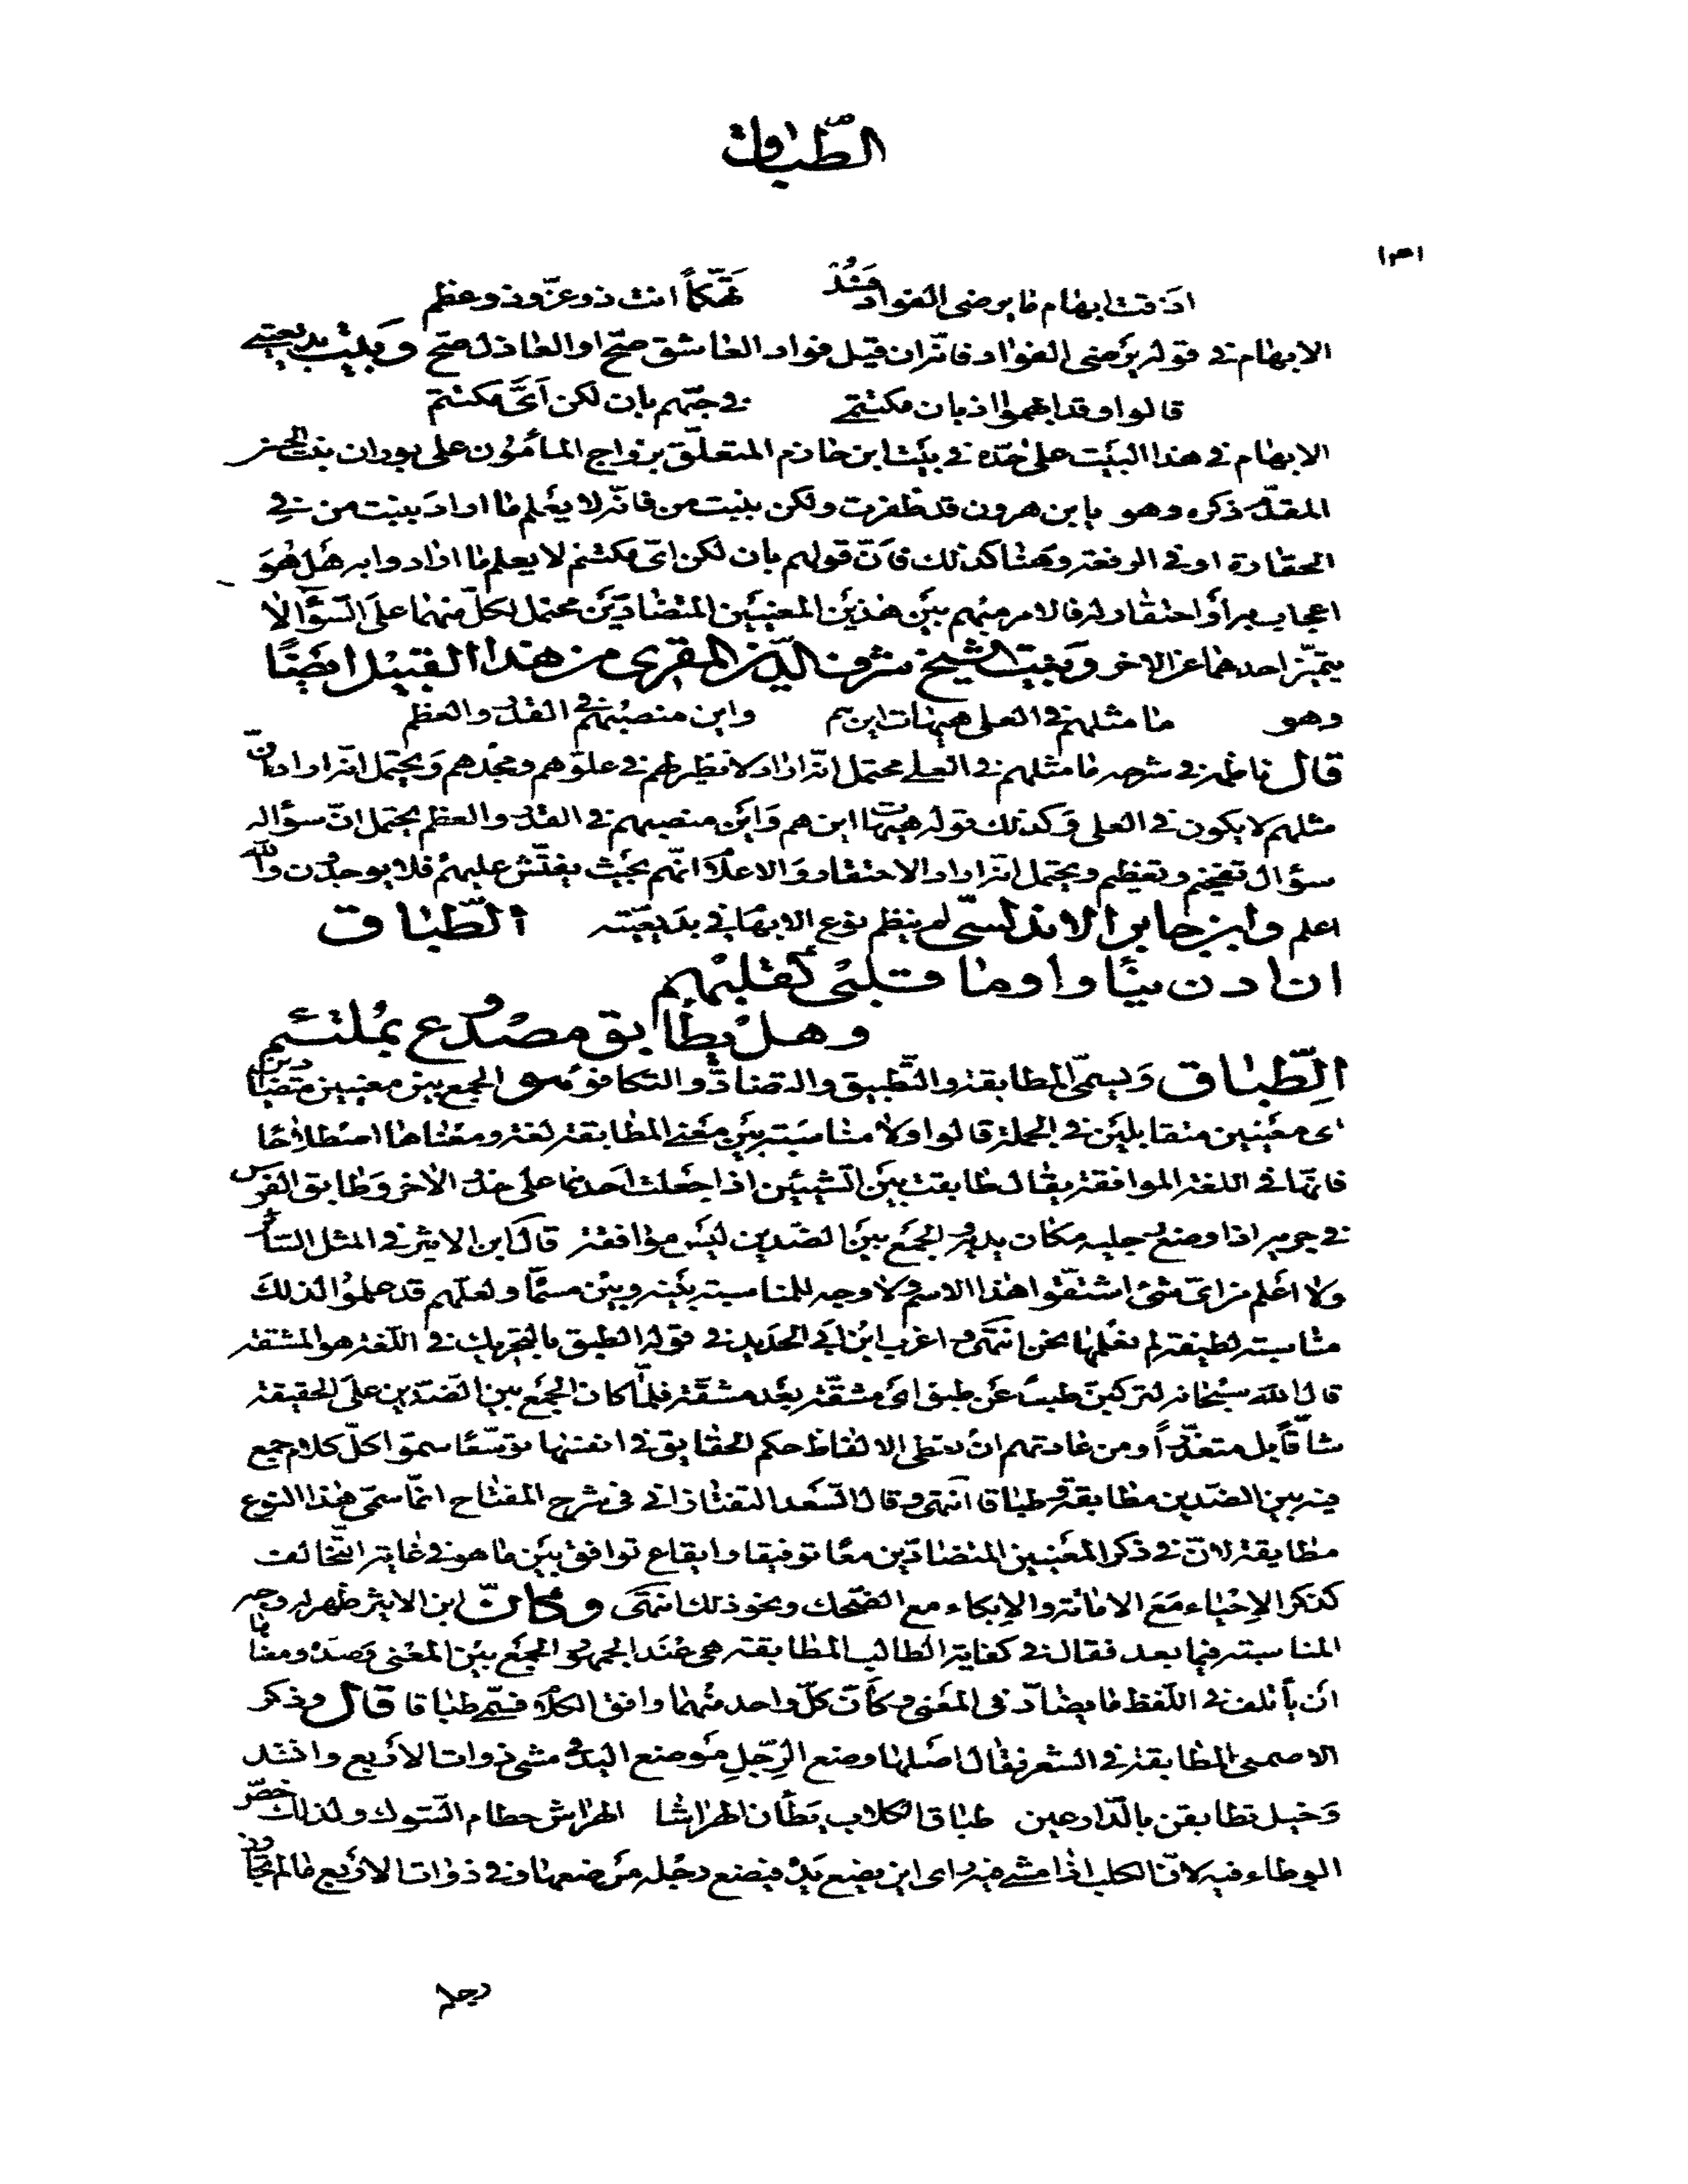 الطّباق
ازدت ابهام ما يرضى الفواد فَنُد تهكّماً انت ذو عزّ وذو عظم
الابهام فى قوله يرضى الفواد فانّه ان قيل فواد العاشق صحّ او العاذل صحّ وبيت بديعيتي
قالوا وقد ابهموا اذ بان مكتتمي في حبّهم بان لكن اَيَّ مكتتم
الابهام في هذا البيت على حدّه في بيت ابن حازم المتعلّق بزواج المأمون على بوران بنت الحسن
المقدّم ذكره وهو يابن هرون قد ظفرت ولكن ببنت من فانّه لا يعلم ما اراد ببنت من في
الحقارة او في الرفعة وهنا كذلك فانّ قولهم بان لكن ايّ مكتتم لا يعلم ما ارادوا به هل هو
اعجاب به أو احتقار له فالامر مبهم بين هذين المعنيين المتضادّين محتمل لكلّ منهما على السّوآ لا
يتميّز احدهما عن الاخر وبيت الشيخ شرف الدّين المقرى من هذا القبيل ايضًا
وهو ما مثلهم في العلى هيهات اين هم واين منصبهم في القدر والعظم
قال ناظمه في شرحه ما مثلهم في العلى محتمل انّه اراد لا نظير لهم في علوّهم ومجدهم ويحتمل انّه اراد انّ
مثلهم لا يكون في العلى وكذلك قوله هيهات اين هم واين منصبهم في القدر والعظم يحتمل انّ سؤاله
سؤال تفخيم وتعظيم ويحتمل انّه اراد الاحتقار والاعلام انّهم بحيث يفتّش عليهم فلا يوجدون والله
اعلم وابن جابر الاندلسيّ لم ينظم نوع الابهام في بديعيّته الطّباق
ان ادن ينأوا وما قلبى كقلبهم
وهل يطابق مصدوع بملتئم
الطّباق ويسمّى المطابقة والتّطبيق والتضادّ والتكافو هو الجمع بين معنيين متضادين
اى معنيين متقابلين في الجملة قالوا ولا مناسبة بين معنى المطابقة لغة ومعناها اصطلاحًا
فانّها في اللغة الموافقة يقال طابقت بين الشيئين اذا جعلت احدهما على حذو الاخر وطابق الفرس
في جريه اذا وضع رجليه مكان يديه والجمع بين الضدين ليس موافقة قال ابن الاثير في المثل السّائر
ولا اعلم من اىّ شئ اشتقّوا هذا الاسم ولا وجه للمناسبة بينه وبين مسمّاه ولعلّهم قد علموا لذلك
مناسبة لطيفة لم نعلمها نحن انتهى واغرب ابن ابى الحديد في قوله الطبق بالتحريك في اللّغة هو المشقة
قال الله سبحانه لتركبنّ طبقًا عن طبق اى مشقّة بعد مشقّة فلمّا كان الجمع بين الضدّين على الحقيقة
شاقّاً بل متعذّراً ومن عادتهم ان تعطى الالفاظ حكم الحقايق في انفسها توسّعًا سموّا كلّ كلام جمع
فيه بين الضدّين مطابقة وطباقا انتهى وقال السّعد التفتازانى في شرح المفتاح انّما سمّى هذا النوع
مطابقة لانّ في ذكر المعنيين المتضادّين معًا توفيقا وايقاع توافق بين ما هو في غاية التّخالف
كذكر الاحياء مع الاماتة والابكاء مع الضّحك ونحو ذلك انتهى وكانّ ابن الاثير ظهر له وجه
المناسبة فيما بعد فقال في كفاية الطالب المطابقة هى عند الجمهور الجمع بين المعنى وضدّه ومعناها
ان يأتلف في اللّفظ ما يضادّ فى المعنى وكأنّ كلّ واحد منهما وافق الكلام فسمّى طباقا قال وذكر
الاصمعى المطابقة في الشعر فقال اصلها وضع الرّجل موضع اليد في مشى ذوات الاربع وانشد
وخيل تطابقن بالدّارعين طباق الكلاب يطأن الهراشا الهراش حطام الشّوك ولذلك خصّ
الوطاء فيه لانّ الكلب اذا مشى فيه راى اين يضع يده فيضع رجله موضعها وفي ذوات الاربع ما لم تجاوز
رجله